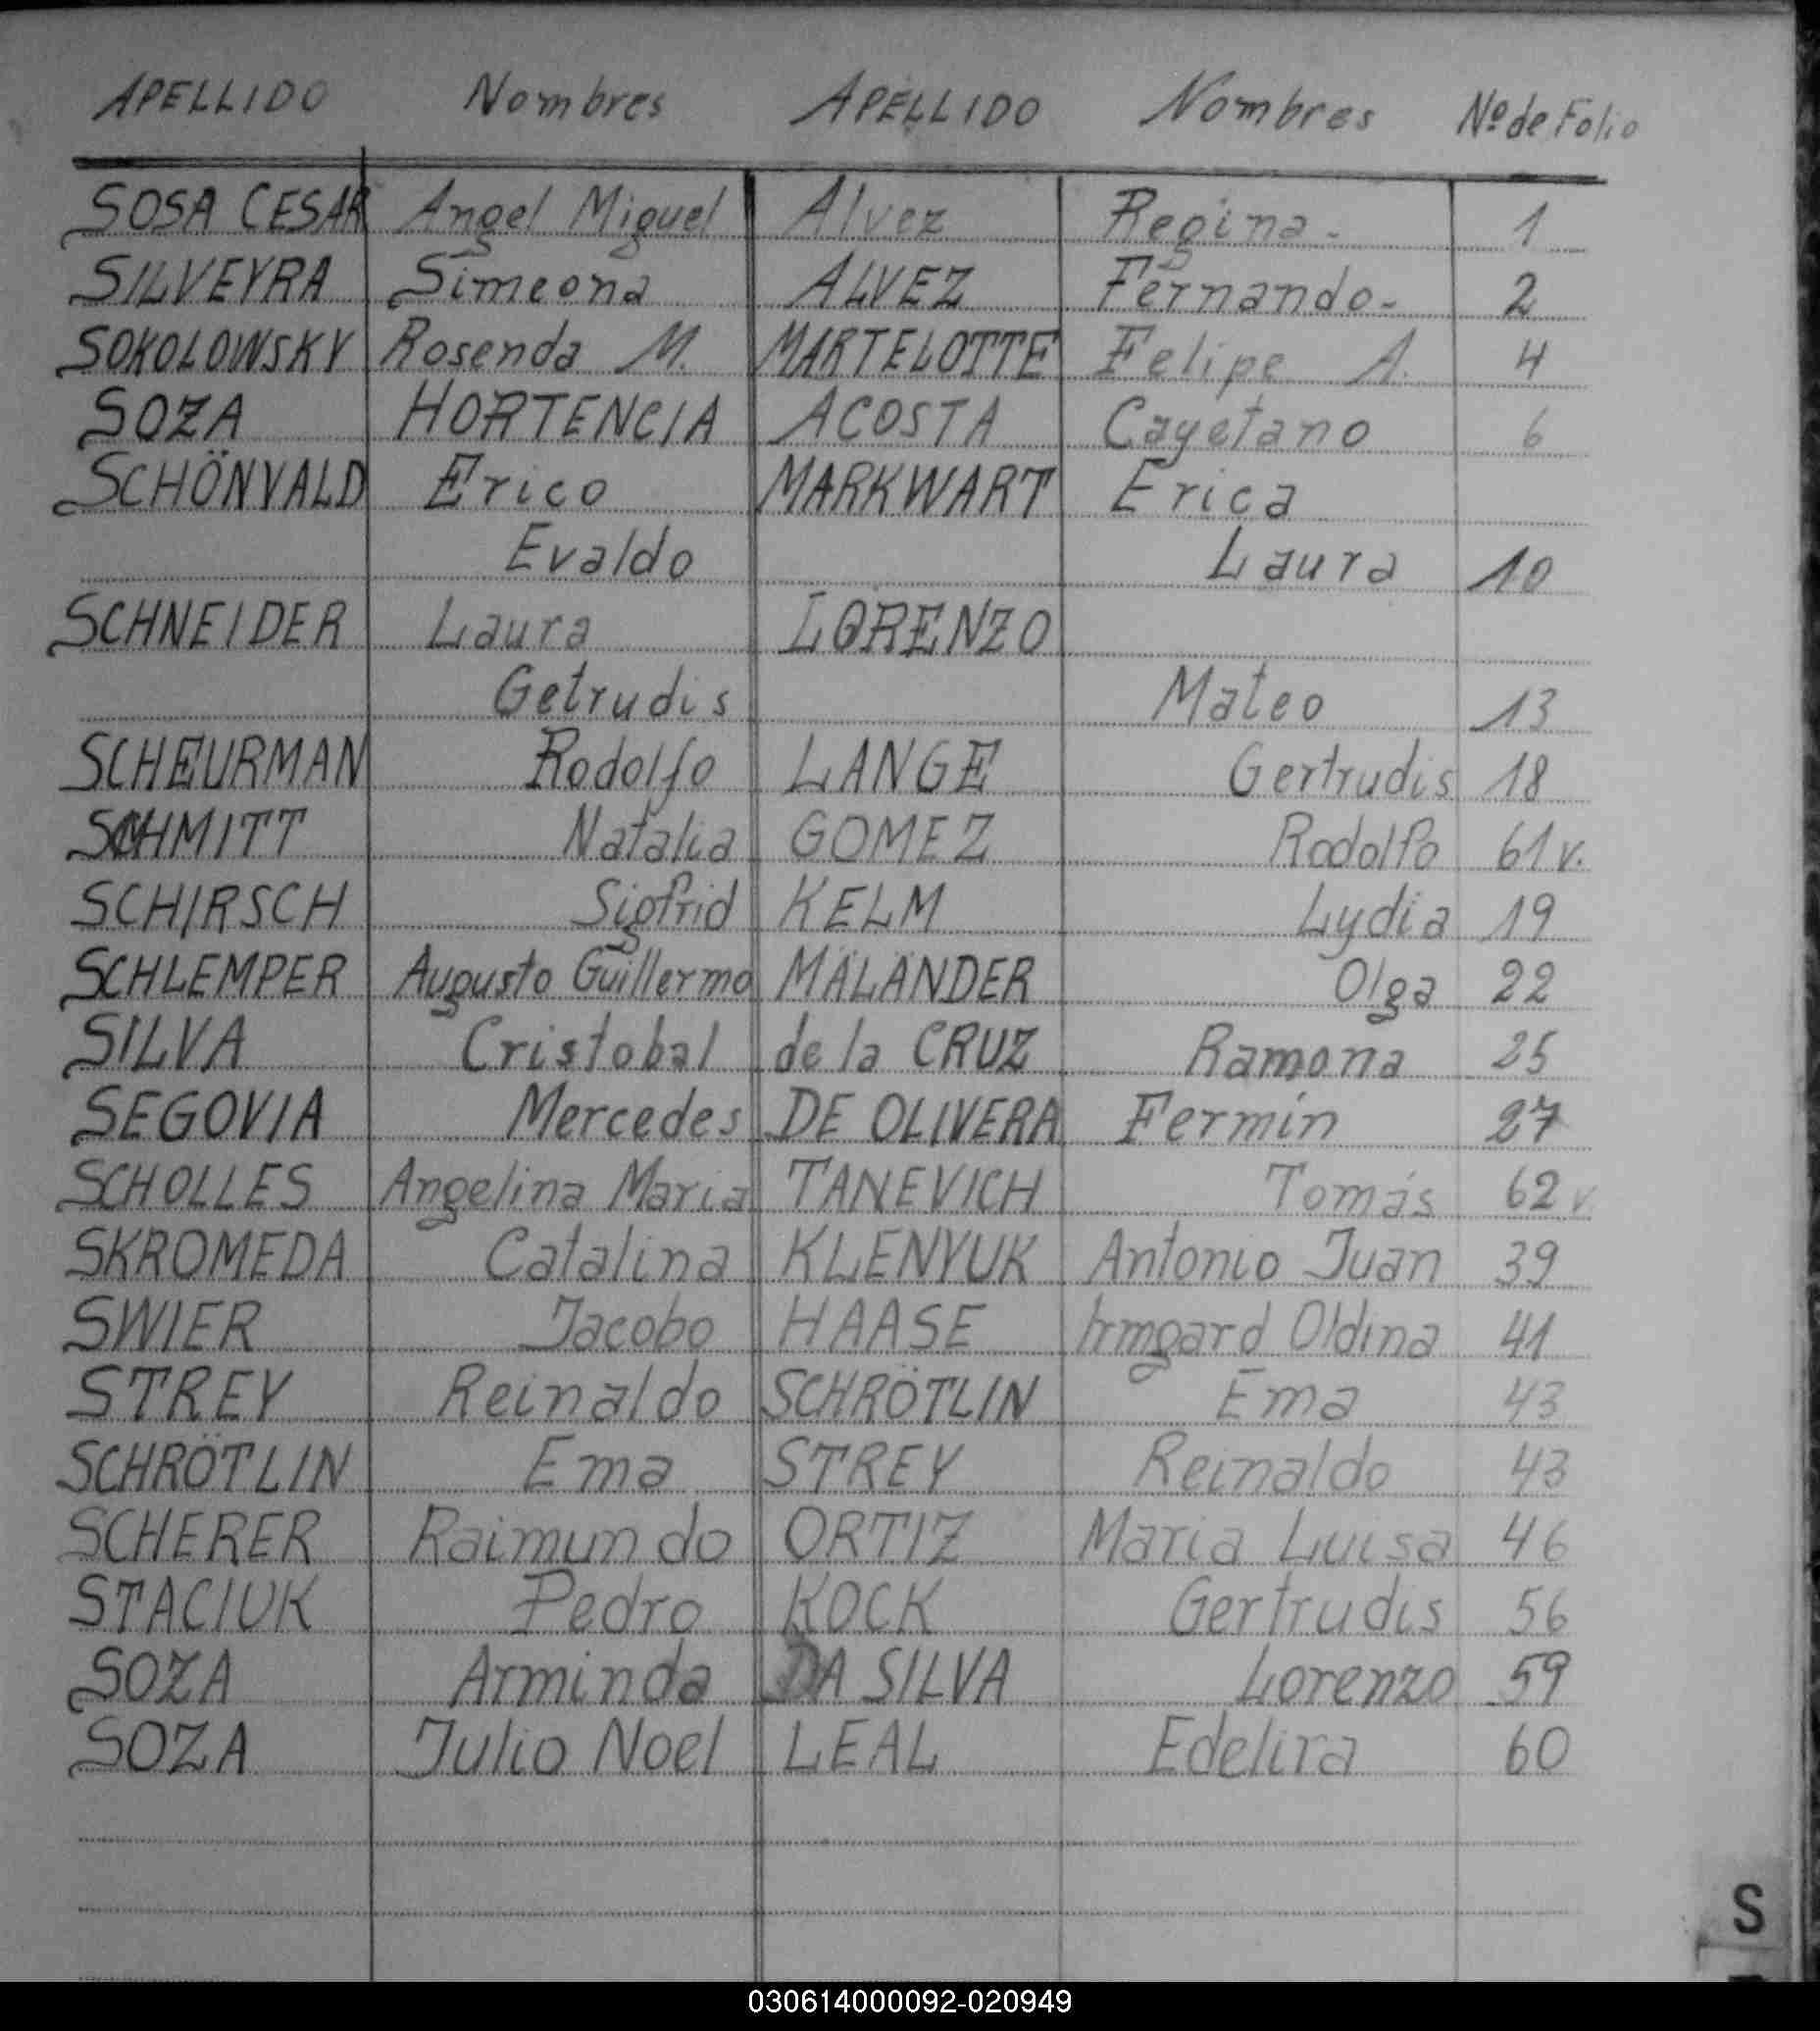 APELLIDO Nombres APELLIDO Nombres Nº de Folio
SOSA CESAR Angel Miguel Alvez Regina - 1
SILVEYRA Simeona ALVEZ Fernando - 2
SOKOLOWSKY Rosenda M. MARTELOTTE Felipe A. 4
SOZA HORTENCIA ACOSTA Cayetano 6
SCHÖNVALD Erico MARKWART Erica
Evaldo Laura 10
SCHNEIDER Laura LORENZO
Getrudis Mateo 13
SCHEURMAN Rodolfo LANGE Gertrudis 18
SCHMITT Natalia GOMEZ Rodolfo 61 v.
SCHIRSCH Sigfrid KELM Lydia 19
SCHLEMPER Augusto Guillermo MÄLÄNDER Olga 22
SILVA Cristobal de la CRUZ Ramona 25
SEGOVIA Mercedes DE OLIVERA Fermín 27
SCHOLLES Angelina Maria TANEVICH Tomás 62 v.
SKROMEDA Catalina KLENYUK Antonio Juan 39
SWIER Jacobo HAASE Irmgard Oldina 41
STREY Reinaldo SCHRÖTLIN Ema 43
SCHRÖTLIN Ema STREY Reinaldo 43
SCHERER Raimundo ORTIZ Maria Luisa 46
STACIUK Pedro KOCK Gertrudis 56
SOZA Arminda DA SILVA Lorenzo 59
SOZA Julio Noel LEAL Edelira 60
S
030614000092-020949